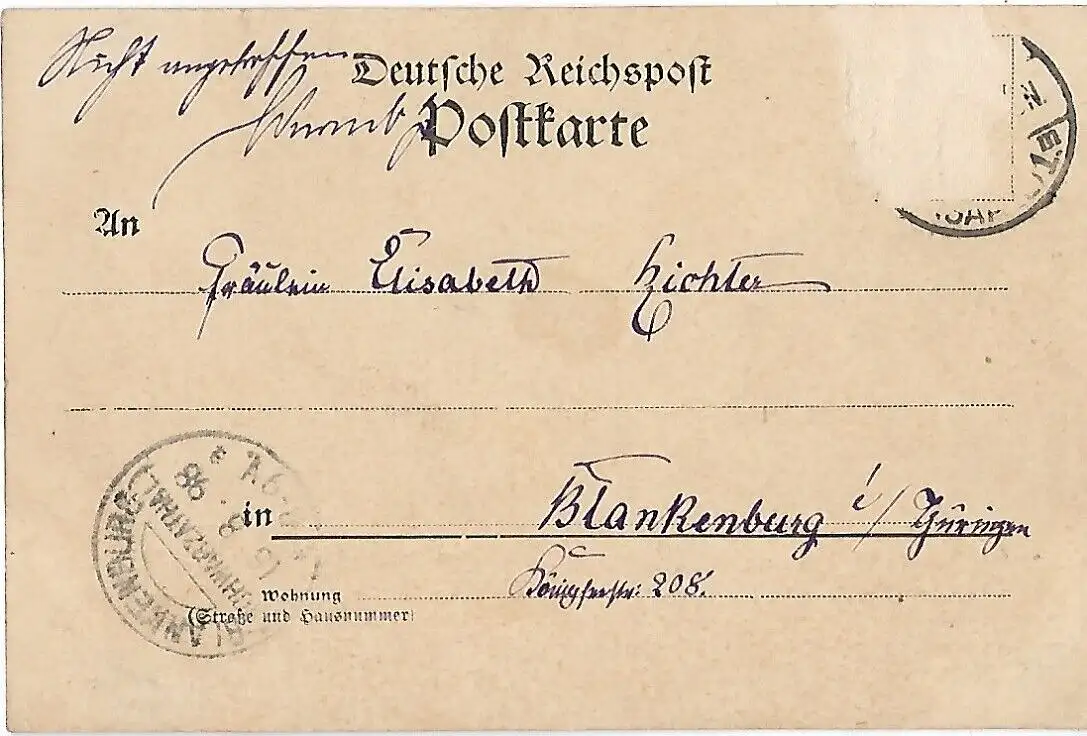 Nicht angetroffen
Deutsche Reichspost
Postkarte
An
Fräulein Elisabeth Richter
in Blankenburg i/ Thüringen
Wohnung
(Straße und Hausnummer)
208.
BLANKENBURG
(SCHWARZATHAL)
98